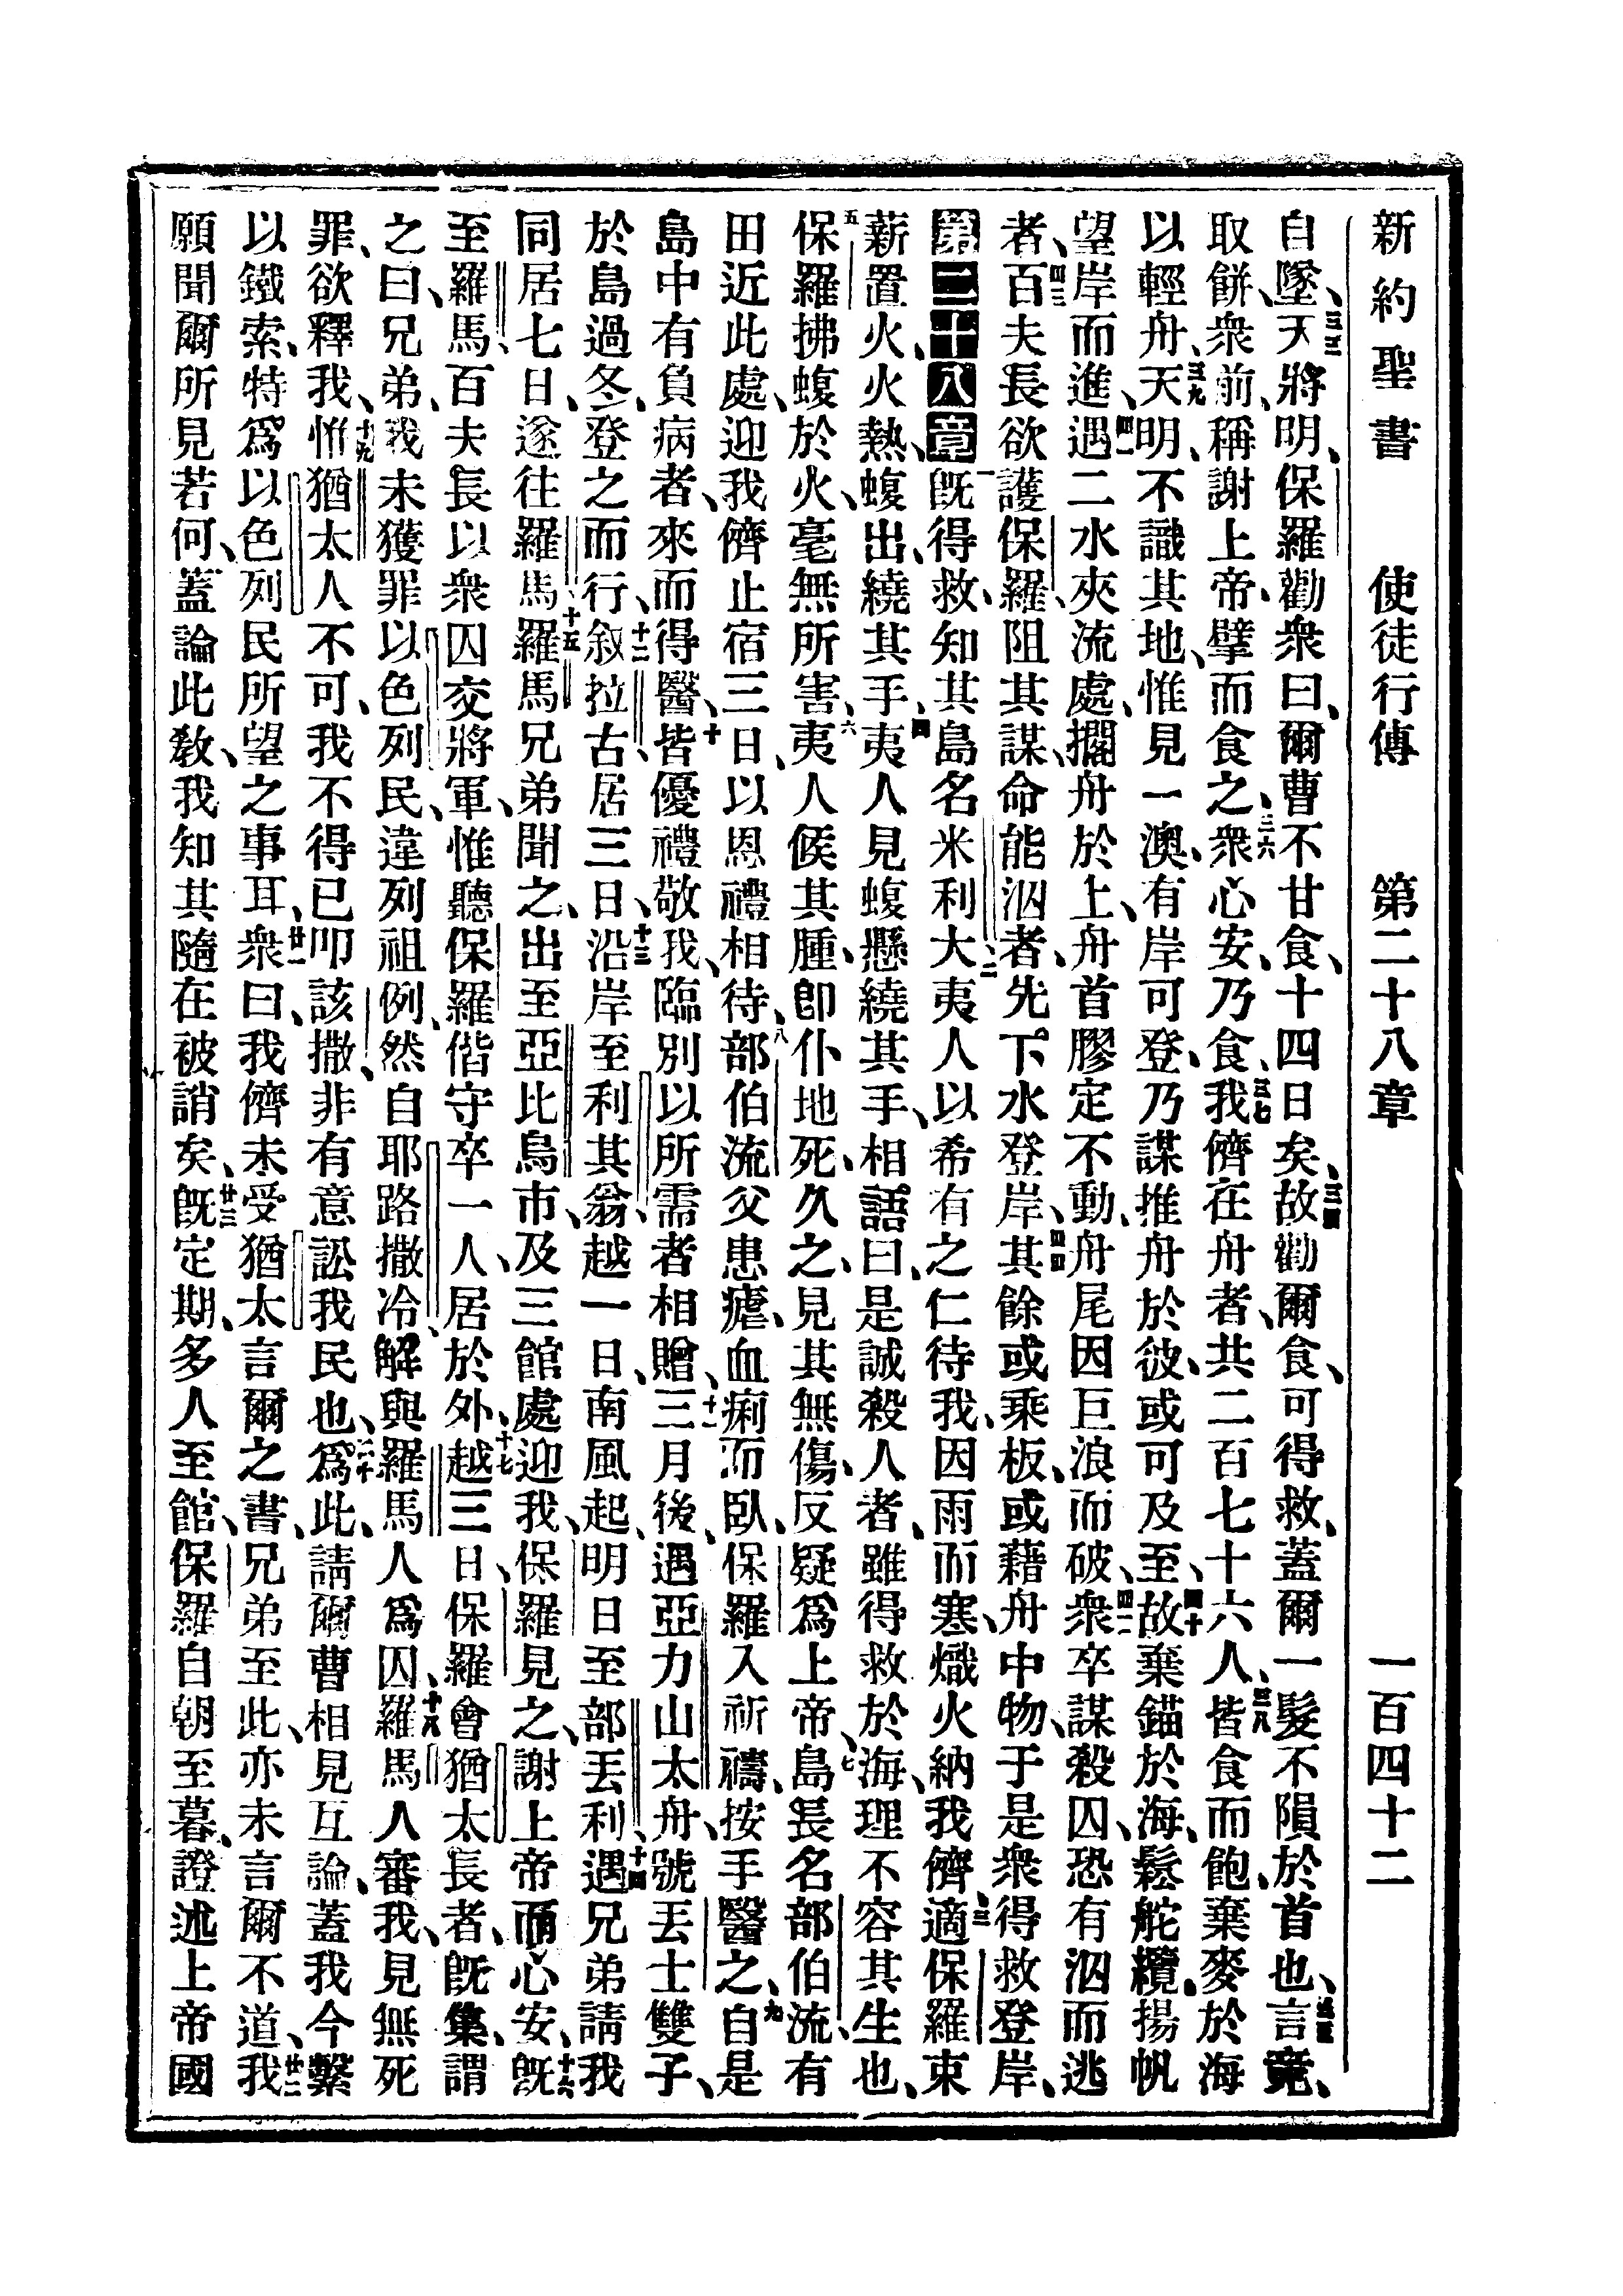 新約聖書 使徒行傳 第二十八章 一百四十二
自墜、三三天將明、保羅勸衆曰、爾曹不甘食、十四日矣、三四故勸爾食、可得救、蓋爾一髮不隕於首也、三五言竟、
取餅、衆前、稱謝上帝、擘而食之、三六衆心安、乃食、三七我儕在舟者、共二百七十六人、三八皆食而飽、棄麥於海
以輕舟、三九天明、不識其地、惟見一澳、有岸可登、乃謀推舟於彼、或可及至、四十故棄錨於海、鬆舵纜、揚帆
望岸而進、四一遇二水夾流處、擱舟於上、舟首膠定不動、舟尾因巨浪而破、四二衆卒謀殺囚、恐有泅而逃
者、四三百夫長欲護保羅、阻其謀、命能泅者、先下水登岸、四四其餘或乘板、或藉舟中物、于是衆得救登岸、
第二十八章一旣得救、知其島名米利大、二夷人以希有之仁待我、因雨而寒、熾火納我儕、三適保羅束
薪置火、火熱、蝮出、繞其手、四夷人見蝮懸繞其手、相語曰、是誠殺人者、雖得救於海、理不容其生也、
五保羅拂蝮於火、毫無所害、六夷人候其腫、卽仆地死、久之、見其無傷、反疑爲上帝、七島長名部伯流、有
田近此處、迎我儕止宿三日、以恩禮相待、八部伯流父患瘧、血痢而臥、保羅入祈禱、按手醫之、九自是
島中有負病者、來而得醫、十皆優禮敬我、臨別以所需者相贈、十一三月後、遇亞力山太舟、號丟士雙子、
於島過冬、登之而行、十二叙拉古居三日、十三沿岸至利其翁、越一日、南風起、明日至部丟利、十四遇兄弟請我
同居七日、遂往羅馬、十五羅馬兄弟聞之、出至亞比烏市、及三館處迎我、保羅見之、謝上帝而心安、十六旣
至羅馬、百夫長以衆囚交將軍、惟聽保羅偕守卒一人、居於外、十七越三日、保羅會猶太長者、旣集、謂
之曰、兄弟、我未獲罪以色列民、違列祖例、然自耶路撒冷解與羅馬人爲囚、十八羅馬人審我、見無死
罪、欲釋我、十九惟猶太人不可、我不得已叩該撒、非有意訟我民也、二十爲此、請爾曹相見互論、蓋我今繫
以鐵索、特爲以色列民所望之事耳、廿一衆曰、我儕未受猶太言爾之書、兄弟至此、亦未言爾不道、廿二我
願聞爾所見若何、蓋論此敎、我知其隨在被誚矣、廿三旣定期、多人至館、保羅自朝至暮、證述上帝國